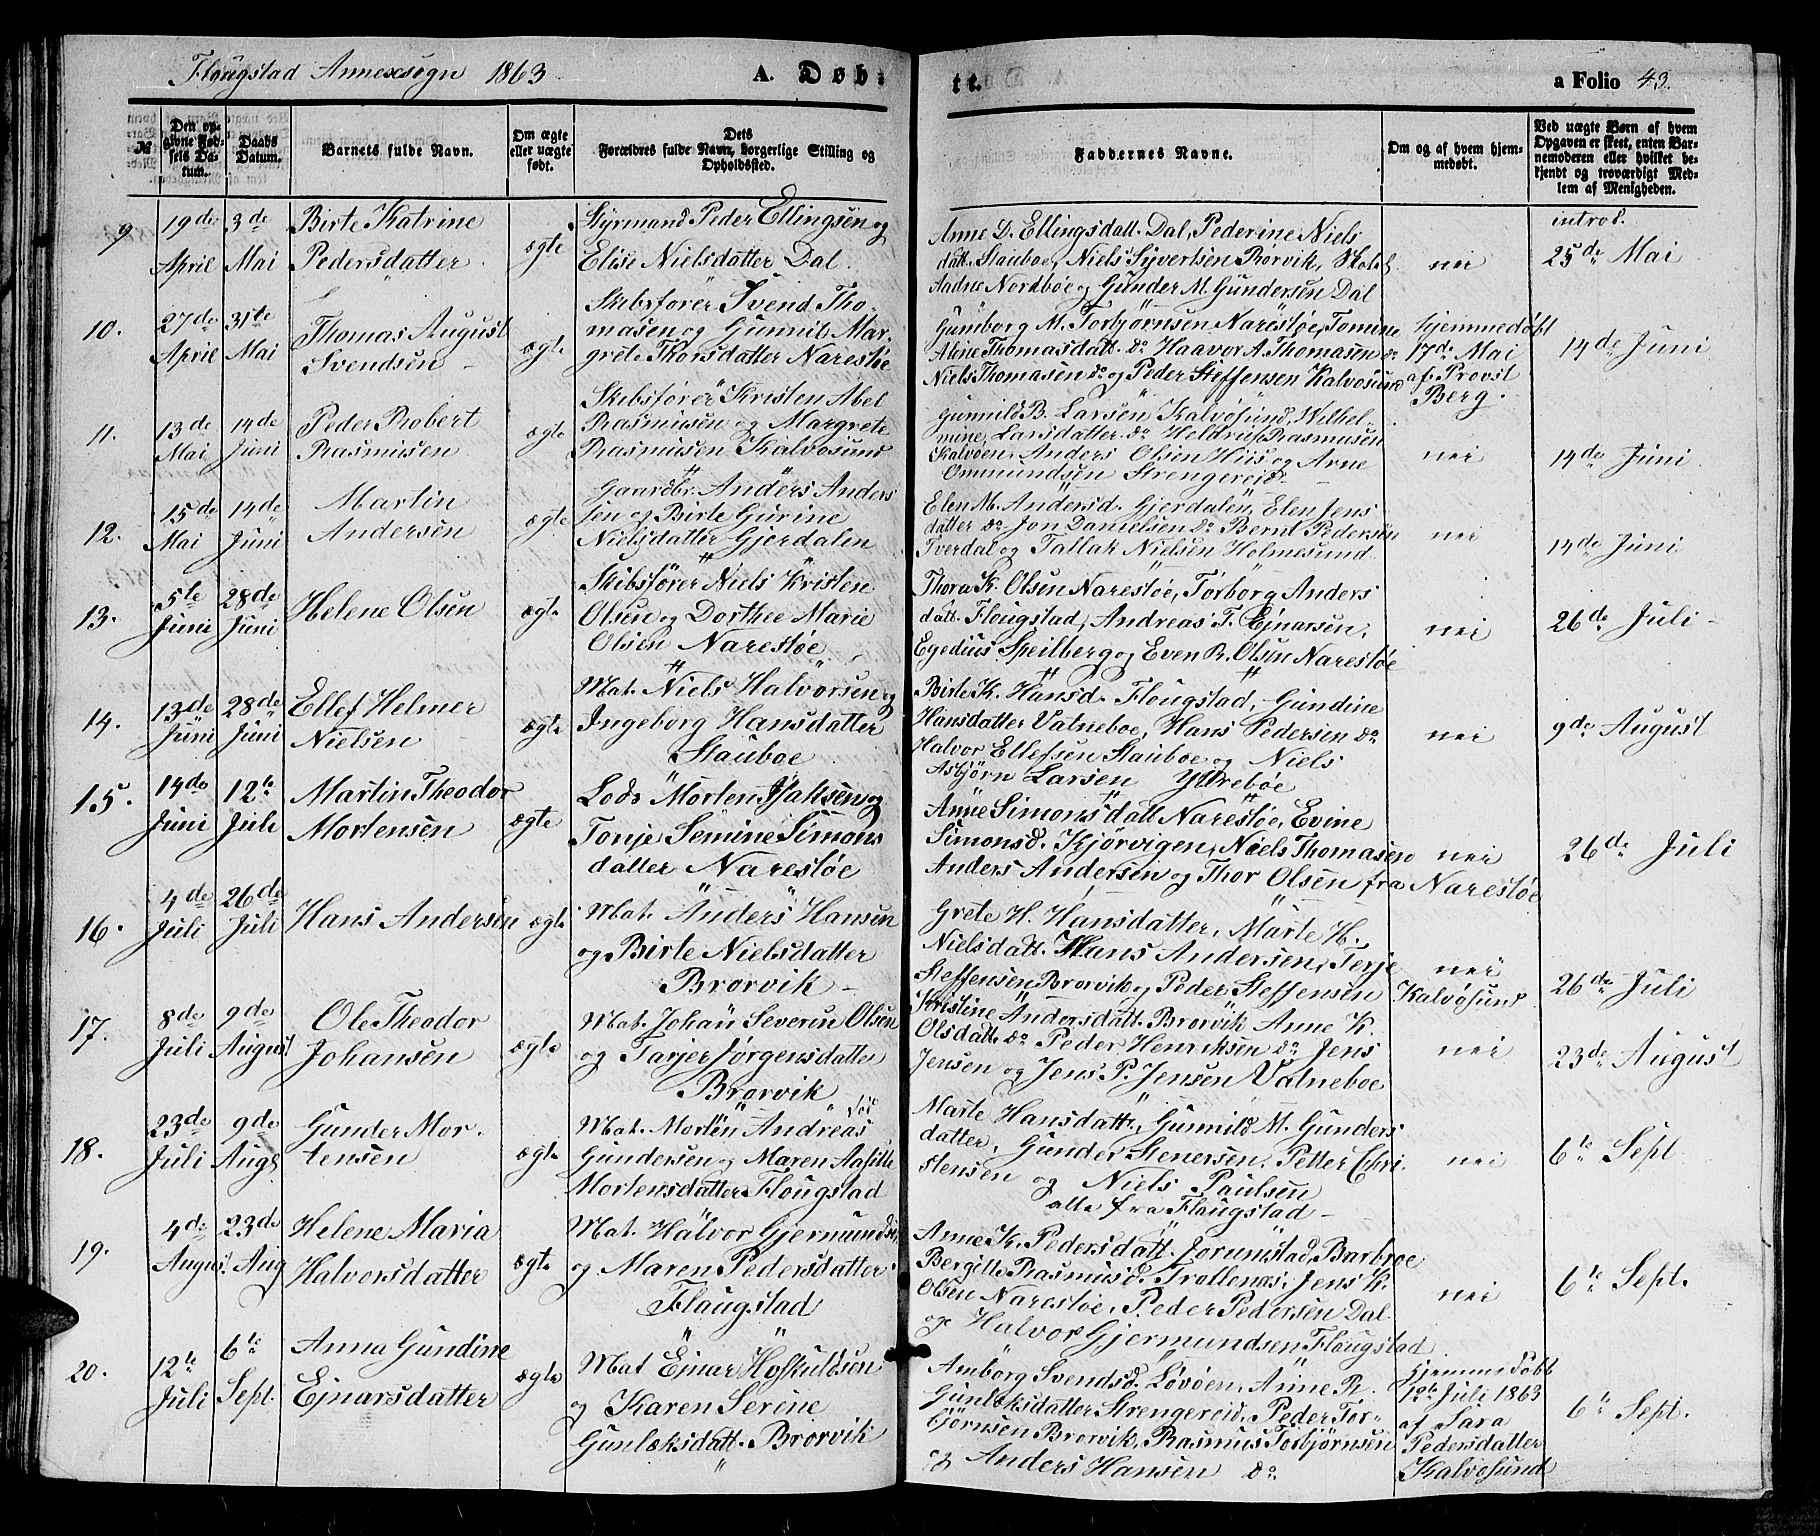 Flougstad Annexsogn 1863 A. Døb-
tt. a Folio 43.
№
Den op-
givne Fød-
sels Da-
tum.
Daabs
Datum.
Barnets fulde Navn.
Om ægte
eller uægte
født.
Dets
Forældres fulde Navn, borgerlige Stilling og
Opholdssted.
Faddernes Navne.
Om og af hvem hjem-
medøbt.
Ved uægte Børn af hvem
Opgaven er skeet, enten Bar-
nemoderen eller hvilket be-
kjendt og troværdigt Med-
lem af Menigheden.
9
19de
April
3de
Mai
Birte Katrine
Pedersdatter
ægte
Styrmand Peder Ellingsen og
Elise Nielsdatter Dal.
Anne D. Ellingsdatt. Dal, Pederine Niels
datt. Stauboe, Niels Syvertsen Brorvik, Skolel
Aadne Nordbøe og Gunder M. Gundersen Dal
nei
introd.
25de Mai
10.
27de
April
31te
Mai
Thomas August
Svendsen
ægte
Skibsfører Svend Tho-
masen og Gunnil Mar-
grete Thorsdatter Narestøe
Gumborg M. Torbjørnsen Narestøe, Tomine
Aline Thomasdatt. do Haavor A. Thomasen do
Niels Thomasen do og Peder Steffensen Kalvosund
hjemmedøbt
17de Mai
af Provst
Berg.
14de Juni
11.
13de
Mai
14de
Juni
Peder Robert
Rasmusen
ægte
Skibsfører Kristen Abel
Rasmusen og Margrete
Rasmusen Kalvøsund
Gunnild B. Larsen Kalvøsund, Wilhel-
mine Larsdatter do Heldrup Rasmusen
Kalvøen, Anders Olsen Hiis og Arne
Ommundsen Strengereid
nei
14de Juni
12.
15de
Mai
14de
Juni
Martin
Andersen
ægte
Gaardbr. Anders Anders
sen og Birte Gurine
Nielsdatter Gjerdalen
Elen M. Andersd. Gjerdalen, Elen Jens
datter do Jon Danielsen do Bernt Pedersen
Tverdal og Tallak Nielsen Holmesund
nei
14de Juni
13.
5te
Juni
28de
Juni
Helene Olsen
ægte
Skibsfører Niels Kristen
Olsen og Dorthee Marie
Olsen Narestøe
Thora K. Olsen Narestøe, Torborg Anders
datt. Flougstad, Andreas T. Ejnarsen,
Egedius Speilberg og Even R. Olsen Narestøe
nei
26de Juli
14.
13de
Juni
28de
Juni
Ellef Helmer
Nielsen
ægte
Mat. Niels Halvorsen og
Ingeborg Hansdatter
Stauboe
Birte K. Hansd. Flougstad, Gundine
Hansdatter Vatneboe, Hans Pedersen do
Halvor Ellefsen Stauboe og Niels
Asbjørn Larsen Yttrebøe
nei
9de August
15.
14de
Juni
12te
Juli
Martin Theodor
Mortensen
ægte
Lods Morten Isaksen og
Tonje Semine Simons
datter Narestøe
Anne Simonsdatt Narestøe, Evine
Simonsd. Kjørvigen, Niels Thomasen
Anders Andersen og Thor Olsen fra Narestøe
nei
26de Juli
16.
4de
Juli
26de
Juli
Hans Andersen
ægte
Mat. Anders Hansen
og Birte Nielsdatter
Brorvik
Grete H. Hansdatter, Marte H.
Nielsdatt. Hans Andersen, Terje
Steffensen Brorvik og Peder Steffensen Kalvøsund
nei
26de Juli
17.
8de
Juli
9de
August
Ole Theodor
Johansen
ægte
Mat. Johan Severin Olsen
og Tarjer Jørgensdatter
Brorvik
Kristine Andersdatt. Brorvik Anne K.
Olsdatt. do Peder Henriksen do Jens
Jensen og Jens P. Jensen Vatneboe
nei
23de August
18.
23de
Juli
9de
Augs
Gunder Mor-
tensen
ægte
Mat. Morten Andreas
Gundersen og Maren Aasille
Mortensdatter Flougstad
Marte Hansdatt., Gunnild M. Gunders
datter, Gunder Stenersen, Petter Chri-
stensen og Niels Paulsen
alle fra Flaugstad
nei
6te Sept
19.
4de
August
23de
Aug
Helene Maria
Halvorsdatter
ægte
Mat. Halvor Gjermundsen
og Maren Pedersdatter
Flaugstad
Anne K. Pedersdatt. Jorunstad, Barbroe
Bergitte Rasmusd. Trollenæs, Jens K.
Olsen Narestøe, Peder Pedersen Dal
og Halvor Gjermundsen Flougstad
nei
6te Sept.
20.
12te
Juli
6te
Sept.
Anna Gundine
Ejnarsdatter
ægte
Mat Ejnar Høskuldsen
og Karen Serine
Gunlæksdatt. Brorvik
Amborg Svendsd. Løvøen, Anne R.
Gunlæksdatter Strengereid, Peder Tor-
bjørnsen Brorvik, Rasmus Torbjørnsen
og Anders Hansen do
hjemmedøbt
12te Juli 1863
af Sara
Pedersdatter
Kalvøsund
6te Sept.